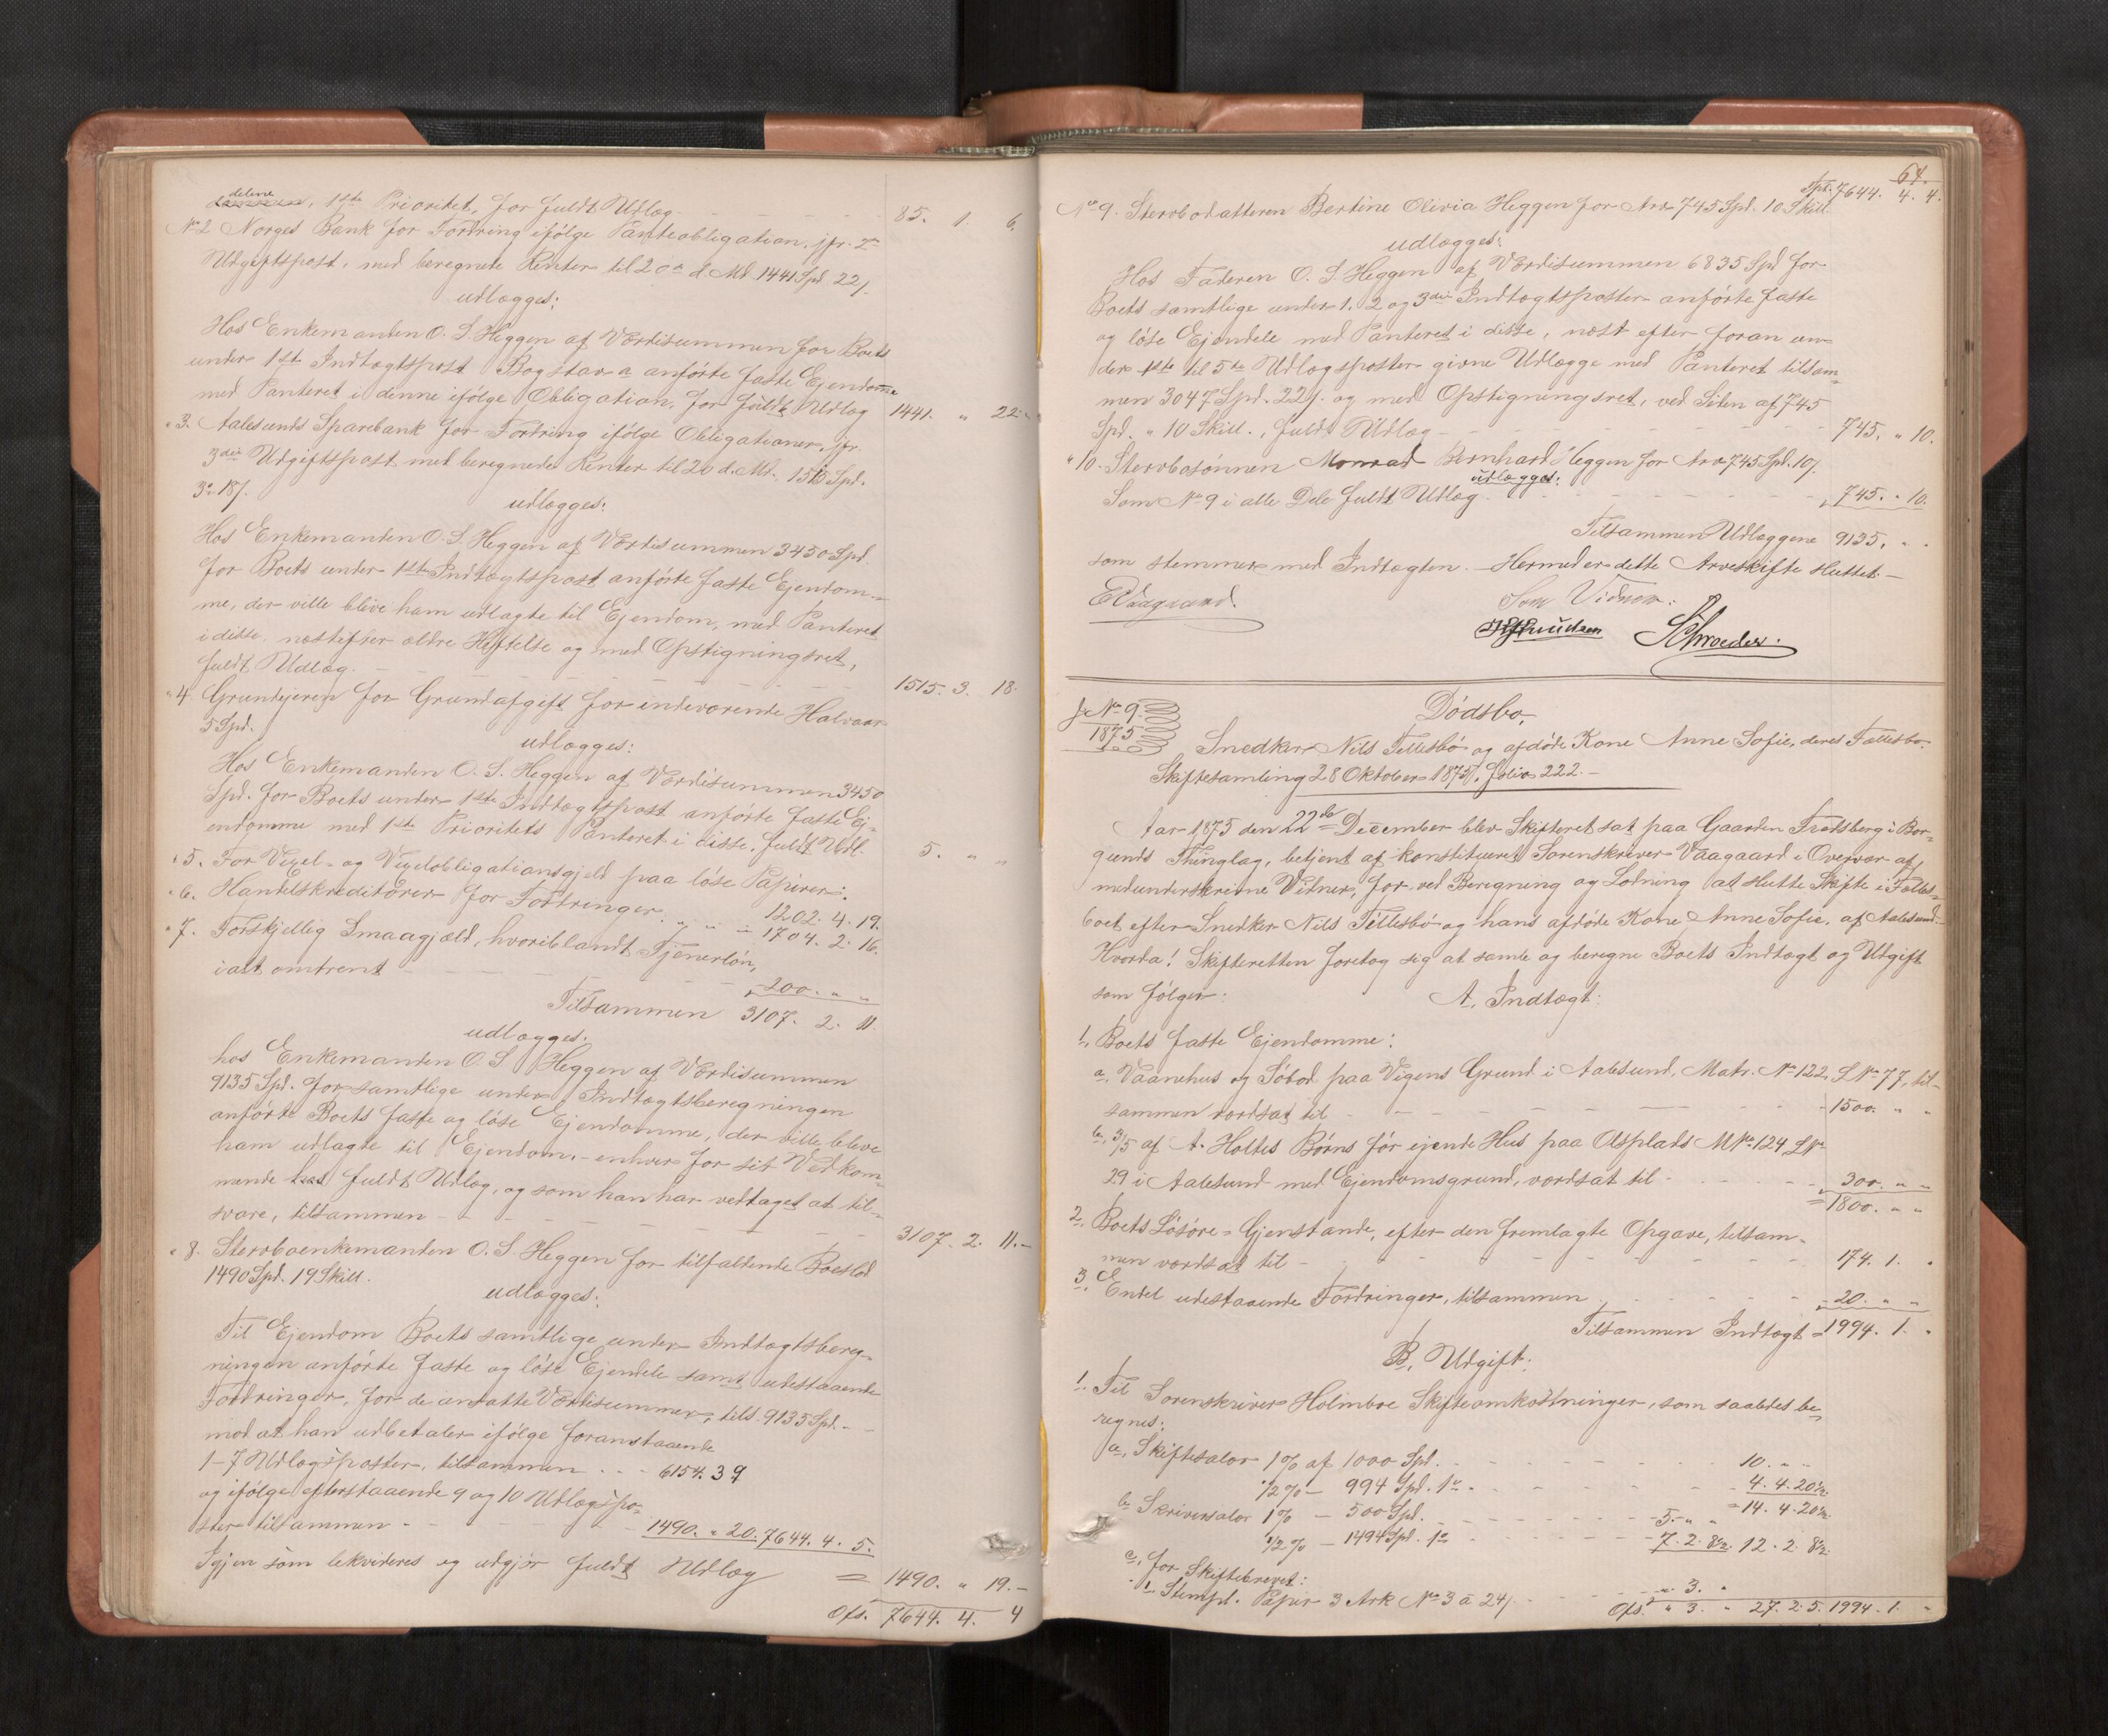 delene
, 1ste Prioritet, for fuldt Udlæg - - - 85. 1. 6.
No 2 Norges Bank for Fordring ifølge Panteobligation, jfr. 2den
Udgiftspost, med beregnede Renter til 20de d. Md. 1441 Spd. 22 /.
udlægges:
Hos Enkemanden O. S. Heggen af Værdisummen for Boets
under 1ste Indtægtspost Bogstav a anførte faste Ejendomme
med Panteret i denne ifølge Obligation, for fuldt Udlæg 1441. " 22. "
" 3. Aalesunds Sparebank for Fordring ifølge Obligationer, jfr.
3die Udgiftspost med beregnede Renter til 20 d. Md. 1515 Spd.
3 " 18 /.
udlægges:
Hos Enkemanden O. S. Heggen af Værdisummen 3450 Spd.
for Boets under 1ste Indtægtspost anførte faste Ejendom-
me, der ville blive ham udlagte til Ejendom, med Panteret
i disse, næstefter ældre Heftelse og med Opstigningsret,
fuldt Udlæg. - - - 1515. 3. 18.
" 4. Grundejeren for Grundafgift for indeværende Halvaar
5 Spd.
udlægges:
Hos Enkemanden O. S. Heggen af Værdisummen 3450
Spd. for Boets under 1ste Indtægtspost anførte faste Ej-
endomme med 1ste Prioritets Panteret i disse, fuldt Udl. 5. " "
" 5. For Vexel- og Vexelobligationsgjeld paa løse Papirer: 1202. 4. 19.
" 6. Handelskreditorer for Fordringer. " " = 1704. 2. 16.
" 7. Forskjellig Smaagjæld, hvoriblandt Tjenerløn,
ialt omtrent - - - 200. " "
Tilsammen 3107. 2. 11.
udlægges:
hos Enkemanden O. S. Heggen af Værdisummen
9135 Spd. for samtlige under Indtægtsberegningen
anførte Boets faste og løse Ejendomme, der ville bleve
ham udlagte til Ejendom, - enhver for sit Vedkom-
mende fuldt Udlæg, og som han har vedtaget at til-
svare, tilsammen - - - 3107. 2. 11. -
" 8. Stervboenkemanden O. S. Heggen for tilfaldende Boeslod
1490 Spd. 19 Skill.
udlægges:
Til Ejendom Boets samtlige under Indtægtsbereg-
ningen anførte faste og løse Ejendele samt udestaaende
Fordringer, for de ansatte Værdisummer, tils. 9135 Spd. -
mod at han udbetaler ifølge foranstaaende
1-7 Udlægsposter, tilsammen . . . 6154. 3 9
og ifølge efterstaaende 9 og 10 Udlægspo-
ster tilsammen - - - 1490. " 20. 7644. 4. 5.
Igjen som lekvideres og udgjør fuldt Udlæg = 1490. " 19. -
Ofs. 7644. 4. 4
61.
Spd. 7644. 4. 4.
No 9. Stervbodatteren Bertine Olivia Heggen for Arv 745 Spd. 10 Skill.
udlægges:
Hos Faderen O. S. Heggen af Værdisummen 6835 Spd for
Boets samtlige under 1. 2 og 3die Indtægtsposter anførte faste
og løse Ejendele med Panteret i disse, næst efter foran un-
der 1ste til 5te Udlægsposter givne Udlægge med Panteret tilsam-
men 3047 Spd. 22 /. og med Opstigningsret, ved Siden af 745
Spd. " 10 Skill., fuldt Udlæg - - - 745. " 10.
" 10. Stervbosønnen Monrad Bernhard Heggen for Arv 745 Spd. 10 /.
udlægges:
Som No 9 i alle Dele fuldt Udlæg. - - - 745. " 10.
Tilsammen Udlæggene 9135. " "
som stemmer med Indtægten. - Hermed er dette Arveskifte sluttet. -
EVaagaard.
Som Vidner:
Knudsen Schroeder.
J No 9.
1875
Dødsbo,
Snedker Nils Tillesbø og afdøde Kone Anne Sofie, deres Fællesbo.
Skiftesamling 28 Oktober 1875, folio 222. -
Aar 1875 den 22de December blev Skifteret sat paa Gaarden Frodsberg i Bor-
gunds Thinglag, betjent af konstitueret Sorenskriver Vaagaard i Overvær af
medunderskrevne Vidner, for ved Beregning og Lodning at slutte Skifte i Fælles-
boet efter Snedker Nils Tillesbø og hans afdøde Kone Anne Sofie, af Aalesund. -
Hvorda! Skifteretten foretog sig at samle og beregne Boets Indtægt og Udgift
som følger:
A, Indtægt:
1, Boets faste Ejendomme:
a, Vaanehus og Søbod paa Vigens Grund i Aalesund, Matr. No 122, L No 77, til-
sammen værdsat til - - - 1500. " "
b, 3/5 af A. Holtes Børns før ejende Hus paa Asplads M No 124 L No
29 i Aalesund med Ejendomsgrund, værdsat til - - - 300. " "
= 1800. " "
2, Boets Løsøre-Gjenstande, efter den fremlagte Opgave, tilsam-
men værdsat til - - - 174. 1. "
3, Endel udestaaende Fordringer, tilsammen - - - 20. " "
Tilsammen Indtægt = 1994. 1. "
B, Udgift:
1, Til Sorenskriver Holmboe Skifteomkostninger, som saaledes be-
regnes:
a, Skiftesalær 1% af 1000 Spd. - - - 10. " "
1/2% - 994 Spd. 1 " - - - 4. 4. 20 1/2.
= 14. 4. 20 1/2.
b, Skriversalær 1% - 500 Spd. - - - 5. " "
1/2% - 1494 Spd. 1 " - - - 7. 2. 8 1/2. 12. 2. 8 1/2.
c, for Skiftebrevet:
1. Stempl. Papir 3 Ark No 3 à 24 /. - - - " 3. "
Ofs. " 3. " 27. 2. 5. 1994. 1. "